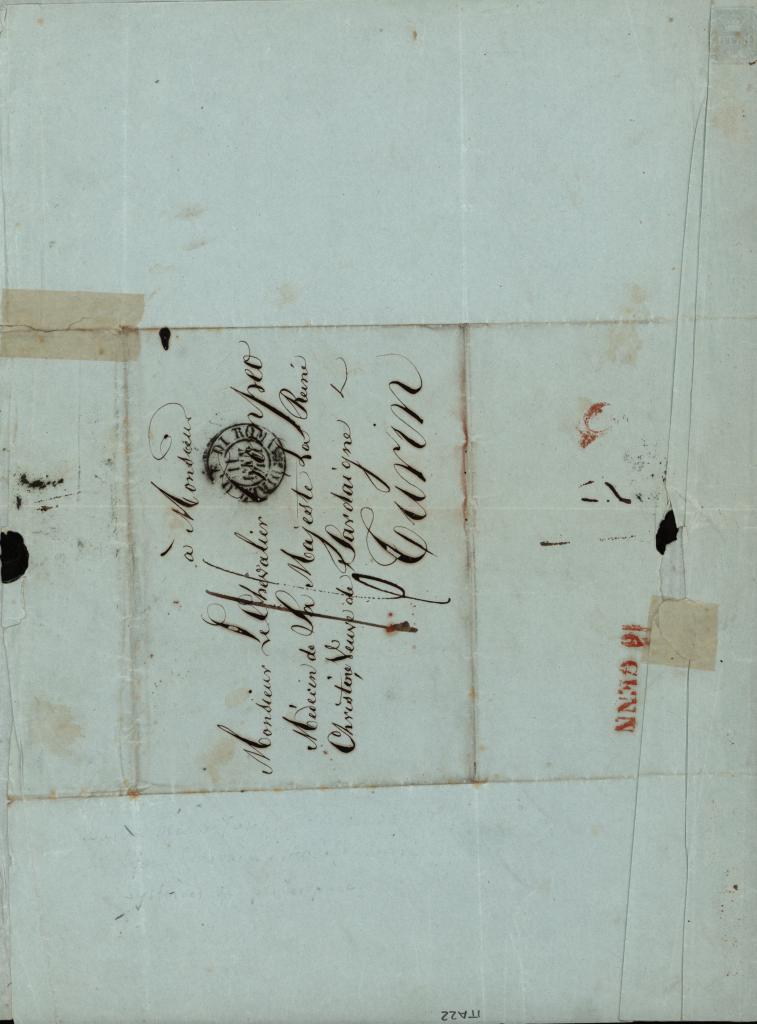 à Monsieur
Monsieur Le Chevalier
Médecin de Sa Majesté La Reine
Christine Veuve de Sardaigne
Turin
DI ROMA
16 GENN
ITA22